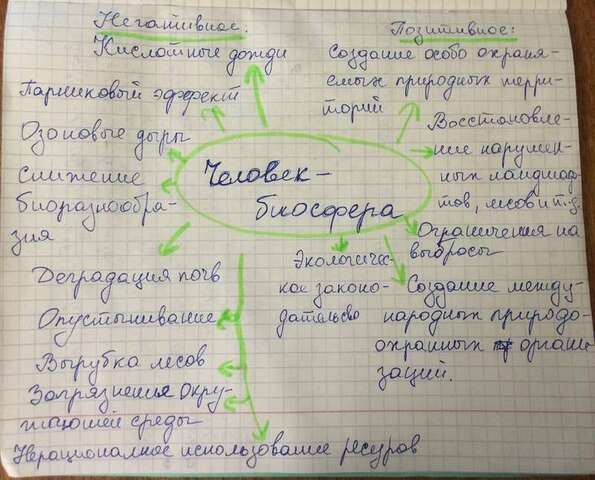 Негативное:
Кислотные дожди
Парниковый эффект
Озоновые дыры
Снижение
биоразнообра-
зия
Деградация почв
Опустынивание
Вырубка лесов
Загрязнение окру-
жающей среды
Нерациональное использование ресурсов
Человек-
биосфера
Позитивное:
Создание особо охраня-
емых природных терри-
торий
Восстановле-
ние нарушен-
ных ландшаф-
тов, лесов и т.д.
Ограничения на
выбросы
Экологичес-
кое законо-
дательство
Создание между-
народных природо-
охранных органи-
заций.